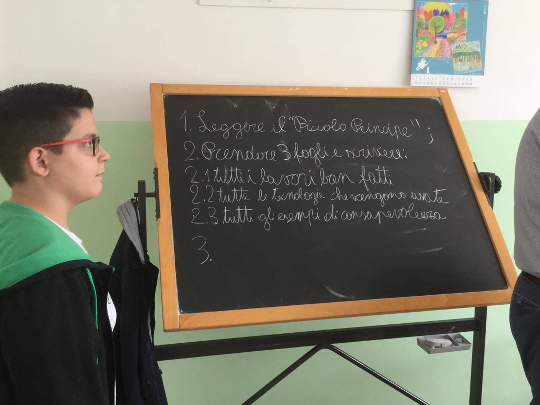 1. Leggere il "Piccolo Principe";
2. Prendere 3 fogli e scriverci:
2.1 tutti i lavori ban fatti
2.2 tutte le tecnologie che vengono usate
2.3 tutti gli esempi di consapevolezza
3.